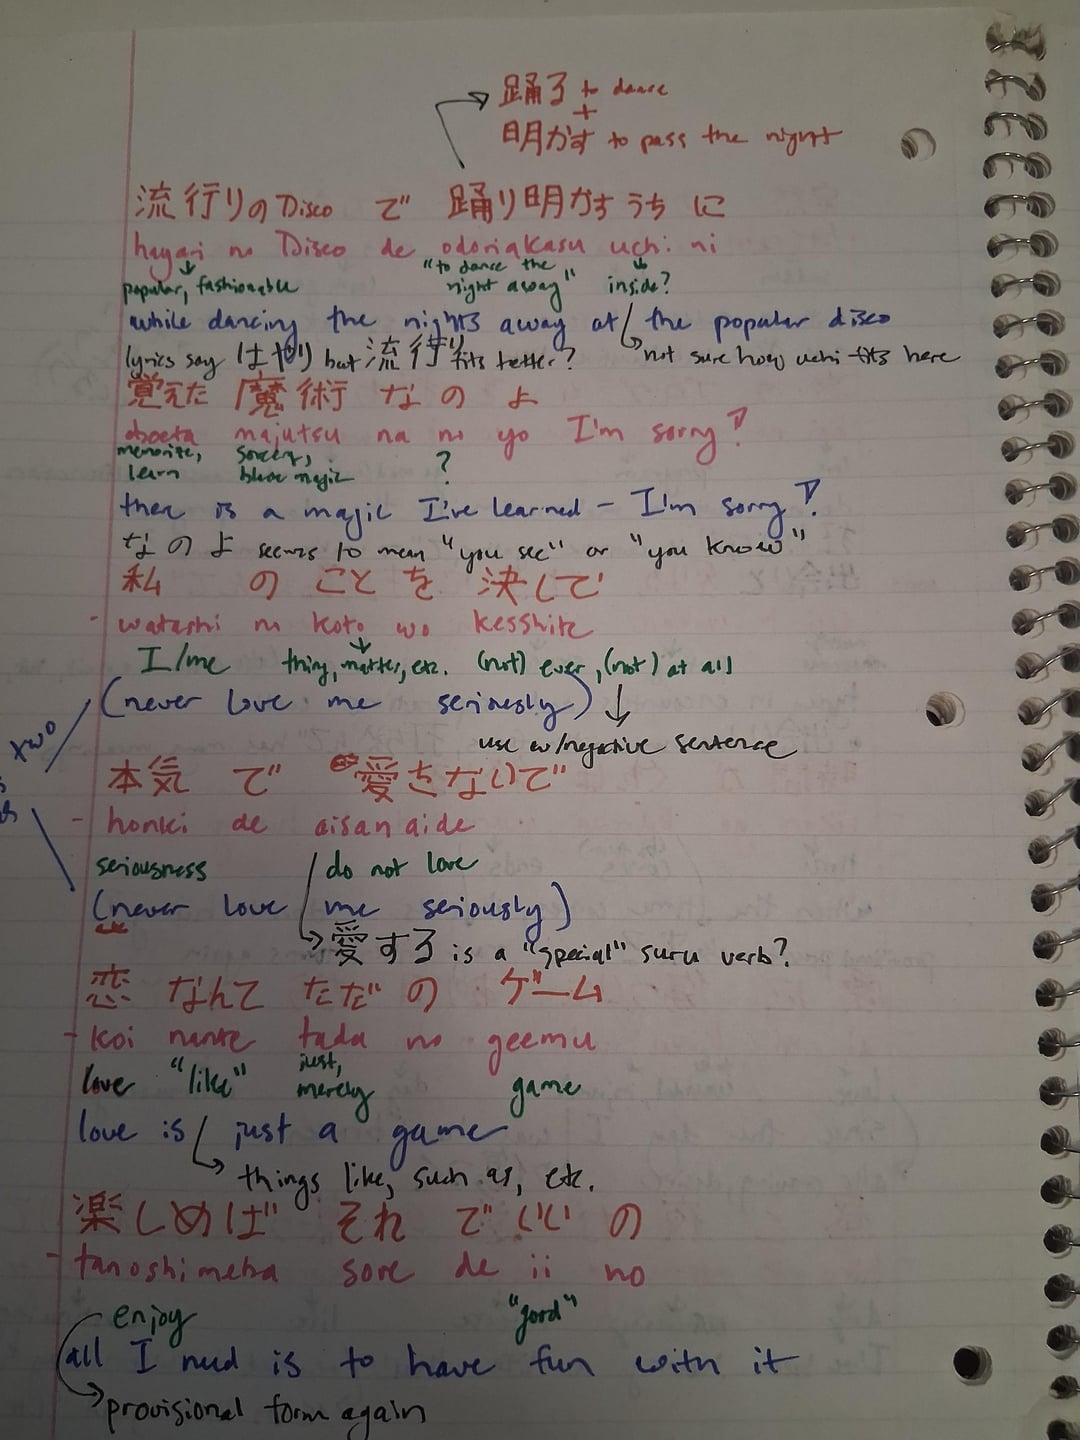 踊る to dance
+
明かす to pass the night
流行りのDisco で 踊り明かすうちに
hayari no Disco de odoriakasu uchi ni
popular, fashionable "to dance the night away" inside?
while dancing the nights away at the popular disco
lyrics say はやり but 流行り fits better? not sure how uchi fits here
覚えた 魔術 なのよ
oboeta majutsu na no yo I'm sorry!
memorize, learn sorcery, black magic ?
there is a magic I've learned - I'm sorry!
なのよ seems to mean "you see" or "you know"
私 のことを 決して
- watashi no koto wo kesshite
I/me thing, matter, etc. (not) ever, (not) at all
(never love me seriously)
use w/negative sentence
two
本気 で 愛さないで
- honki de aisanaide
seriousness do not love
(never love me seriously)
愛する is a "special" suru verb?
恋 なんて ただ の ゲーム
- koi nante tada no geemu
love "like" just, merely game
love is just a game
things like, such as, etc.
楽しめば それ でいい の
- tanoshimeba sore de ii no
enjoy "good"
all I need is to have fun with it
provisional form again